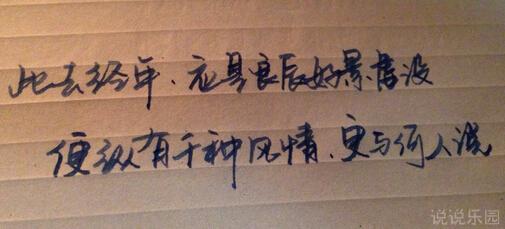 此去经年、应是良辰好景虚设
便纵有千种风情、更与何人说
说说乐园